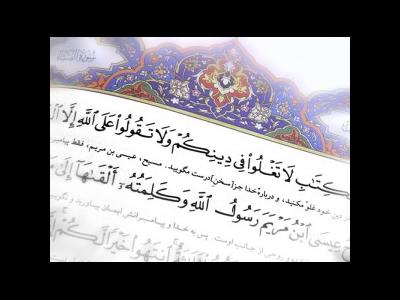 سُورَةُ النِّسَاءِ
الْكِتَٰبِ لَا تَغْلُوا۟ فِی دِینِكُمْ وَلَا تَقُولُوا۟ عَلَى ٱللَّهِ إِلَّا
در دین خود غلو مکنید، و دربارهٔ خدا جز [سخن] درست مگویید. مسیح، عیسی بن مریم، فقط پیامبر
عِیسَى ٱبْنُ مَرْیَمَ رَسُولُ ٱللَّهِ وَكَلِمَتُهُۥٓ أَلْقَىٰهَآ إِلَىٰ
و روحی از جانب اوست. پس به خدا و پیامبرانش ایمان بیاورید و نگویید
ٱنتَهُوا۟ خَیْرًا لَّكُمْ